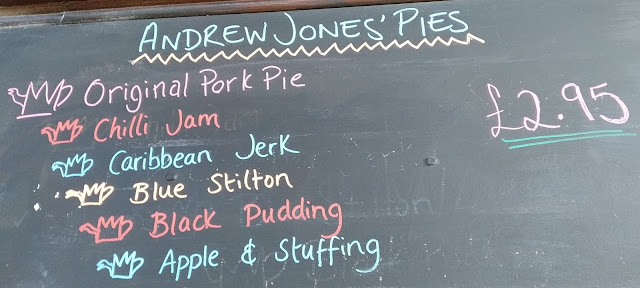 ANDREW JONES' PIES
Original Pork Pie
£2.95
Chilli Jam
Caribbean Jerk
Blue Stilton
Black Pudding
Apple & Stuffing